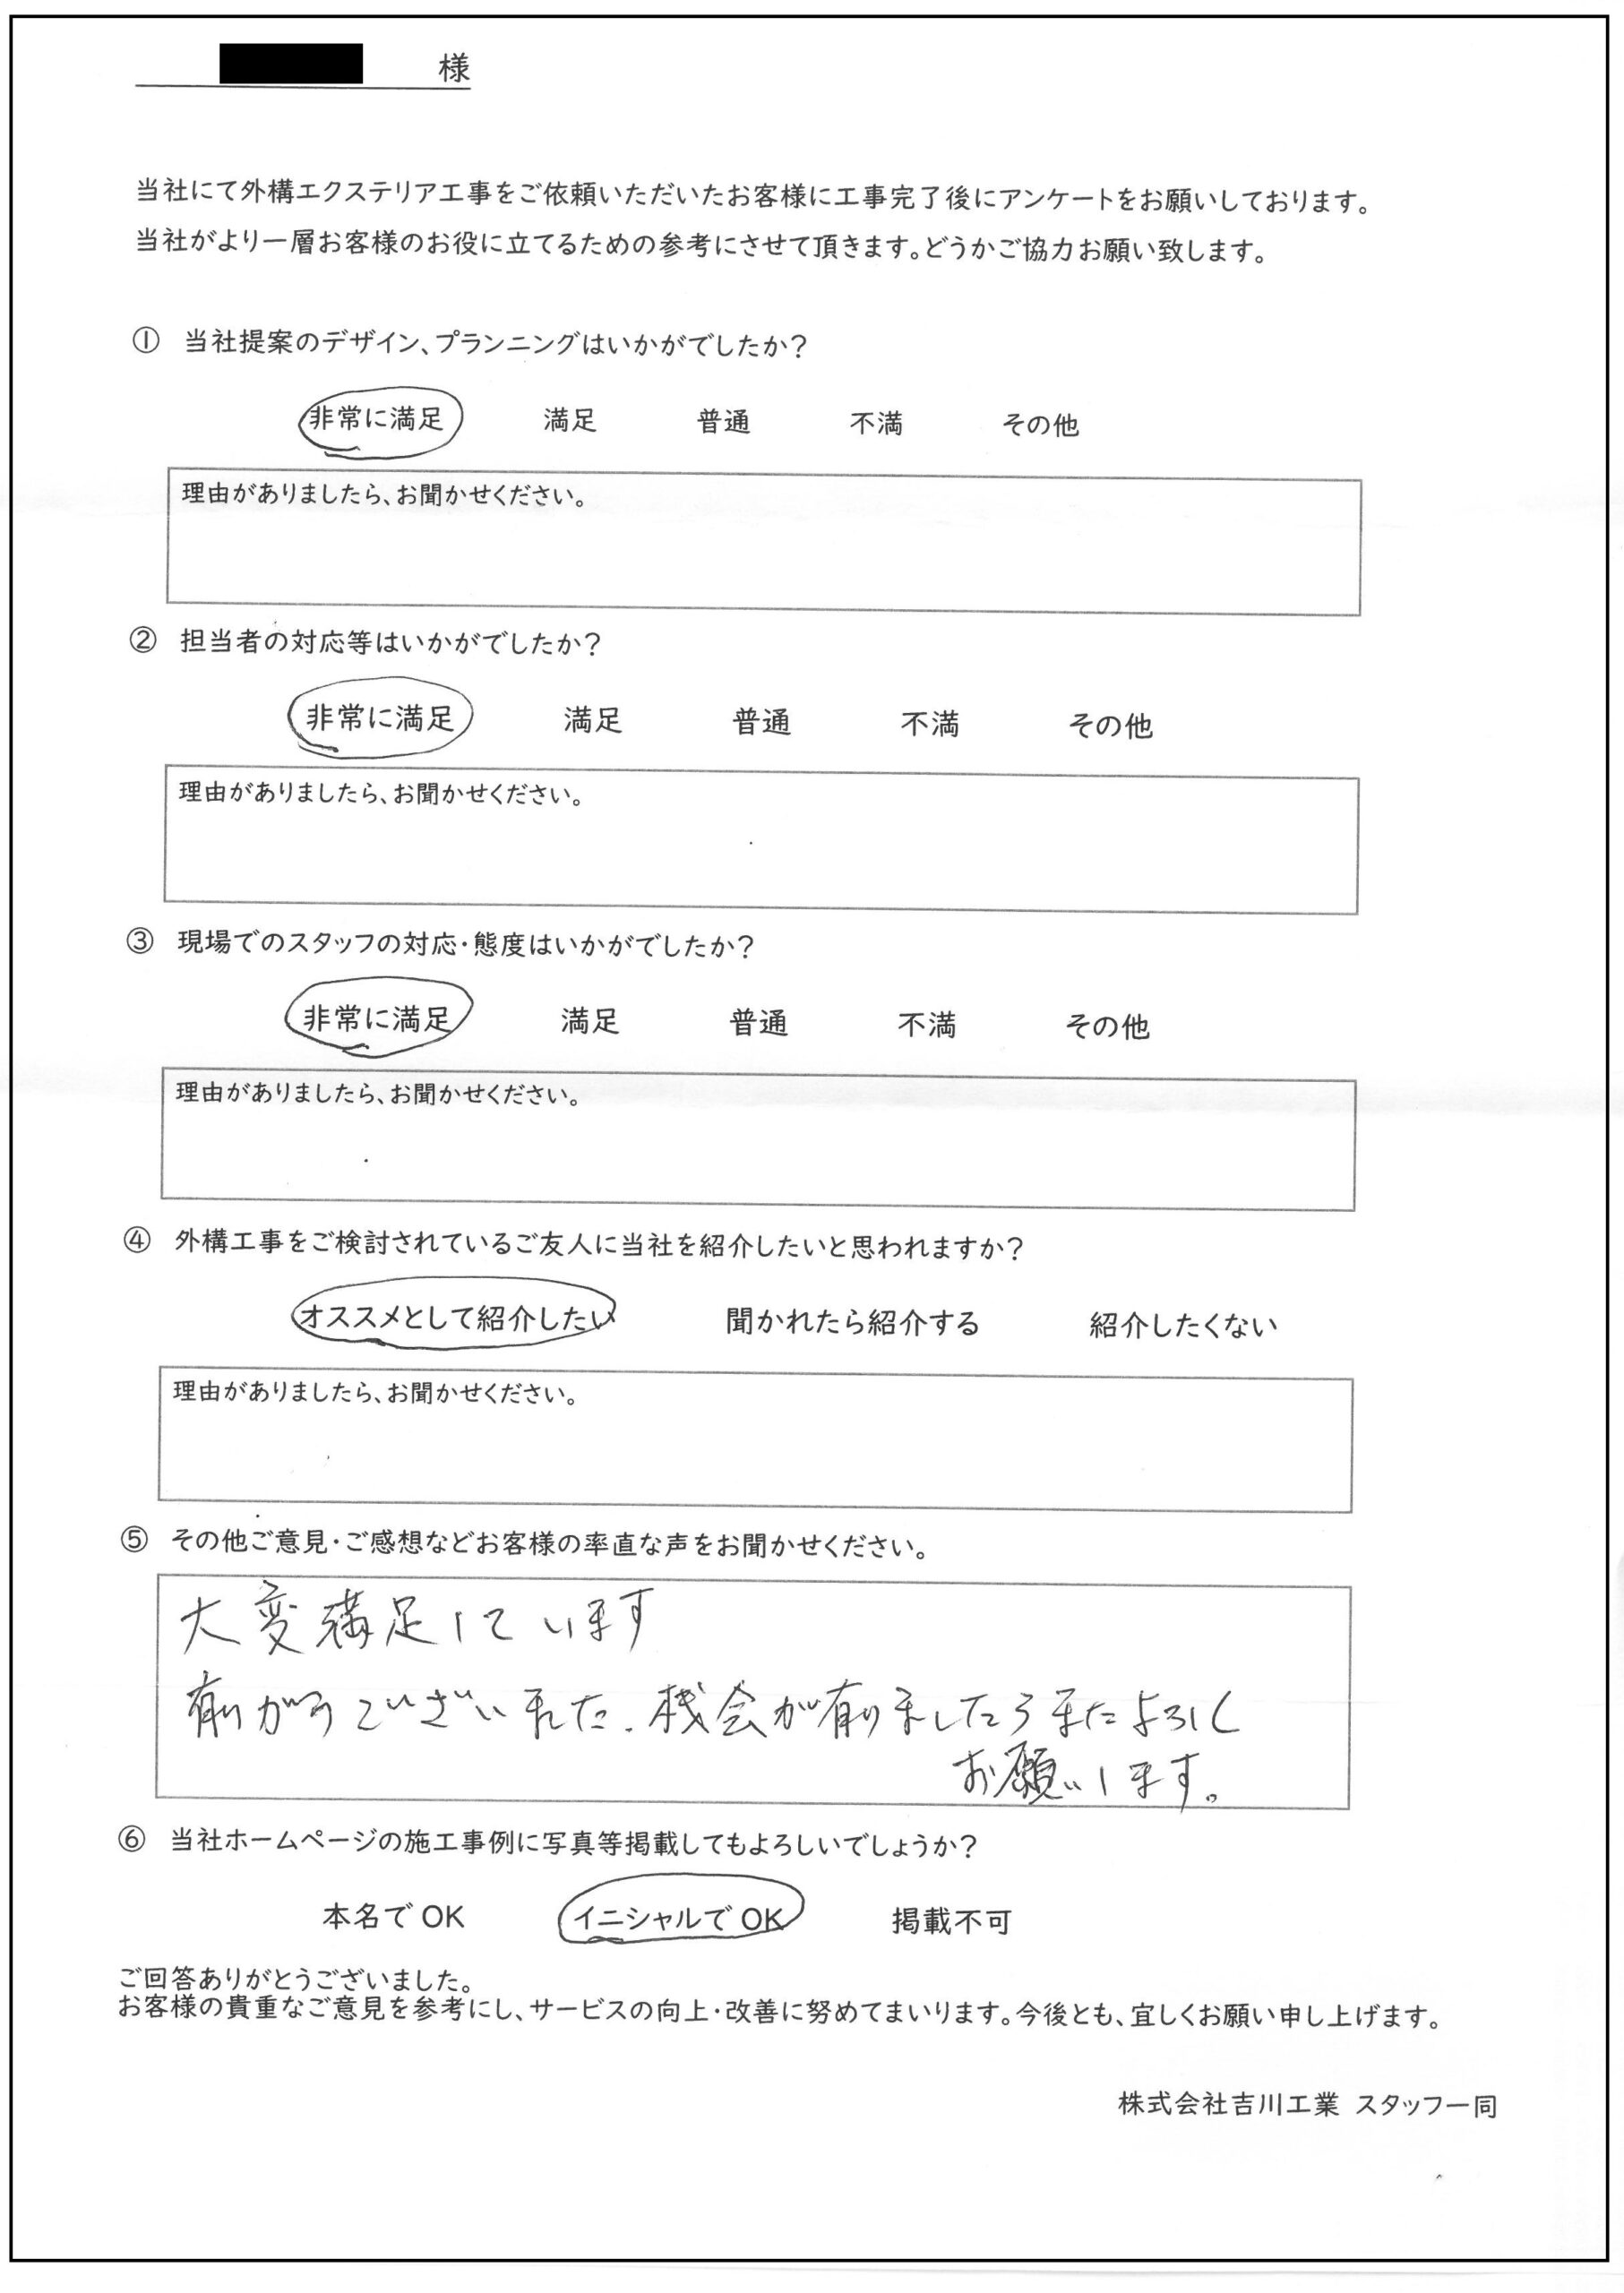 様
当社にて外構エクステリア工事をご依頼いただいたお客様に工事完了後にアンケートをお願いしております。
当社がより一層お客様のお役に立てるための参考にさせて頂きます。どうかご協力お願い致します。
① 当社提案のデザイン、プランニングはいかがでしたか？
非常に満足 満足 普通 不満 その他
理由がありましたら、お聞かせください。
② 担当者の対応等はいかがでしたか？
非常に満足 満足 普通 不満 その他
理由がありましたら、お聞かせください。
③ 現場でのスタッフの対応・態度はいかがでしたか？
非常に満足 満足 普通 不満 その他
理由がありましたら、お聞かせください。
④ 外構工事をご検討されているご友人に当社を紹介したいと思われますか？
オススメとして紹介したい 聞かれたら紹介する 紹介したくない
理由がありましたら、お聞かせください。
⑤ その他ご意見・ご感想などお客様の率直な声をお聞かせください。
大変満足しています
有りがとうございました。機会が有りましたらまたよろしく
お願いします。
⑥ 当社ホームページの施工事例に写真等掲載してもよろしいでしょうか？
本名でOK イニシャルでOK 掲載不可
ご回答ありがとうございました。
お客様の貴重なご意見を参考にし、サービスの向上・改善に努めてまいります。今後とも、宜しくお願い申し上げます。
株式会社吉川工業 スタッフ一同